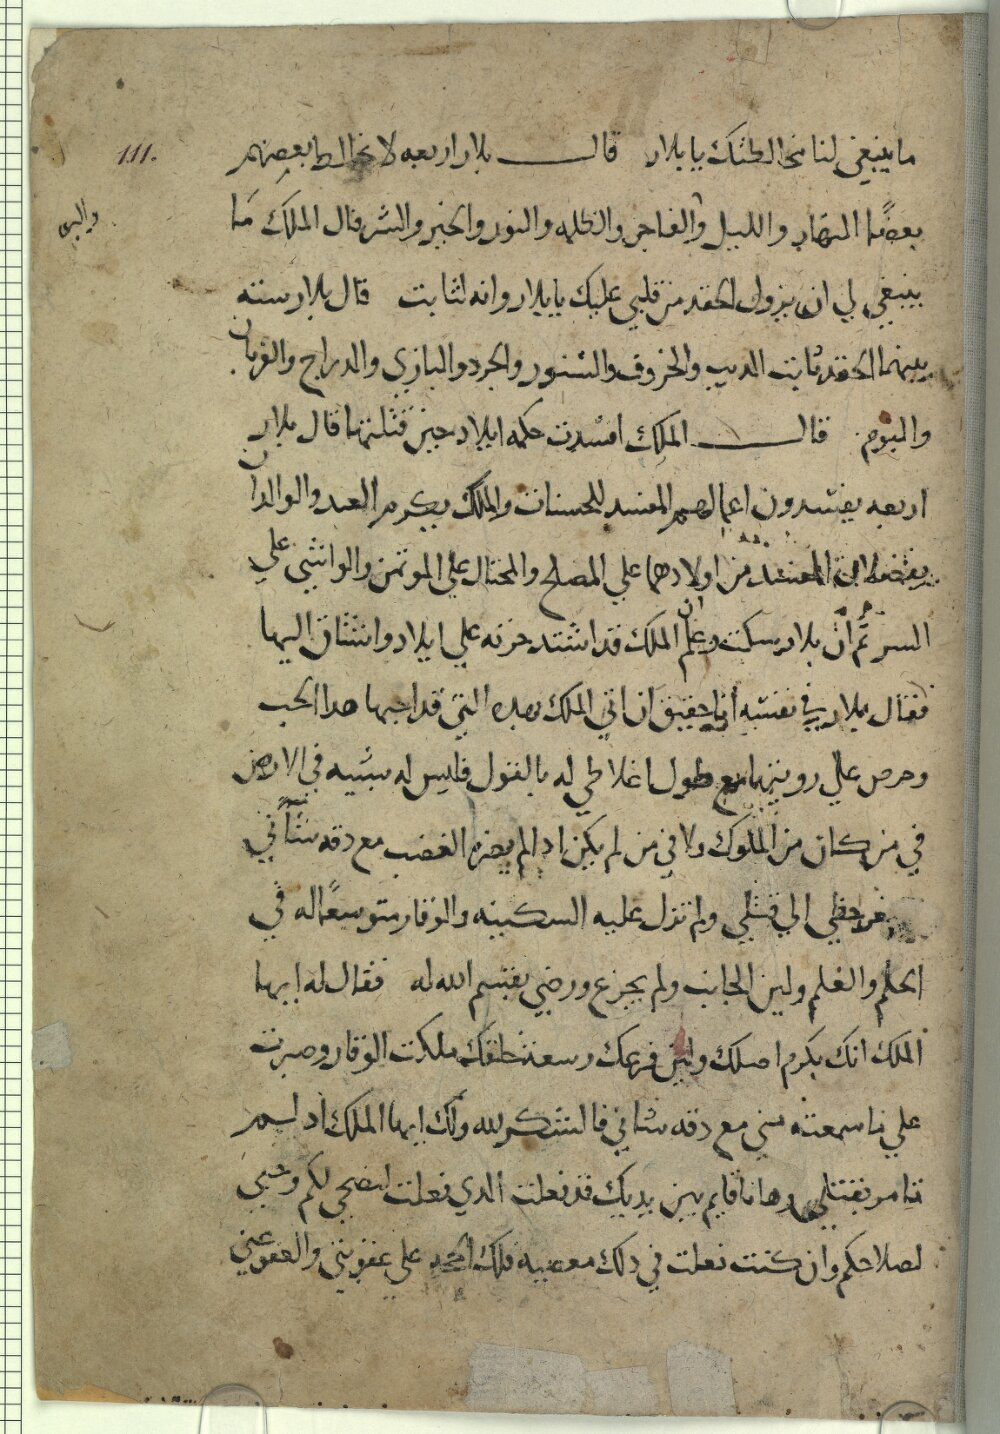 111.
ما ينبغي لنا مخالطتك يا بلار قال بلار اربعه لا تخالط بعضهم
والبر
بعضًا النهار والليل والفاجر والظلمه والنور والخير والشر قال الملك مَا
ينبغي لي ان يزول الحقد من قلبي عليك يا بلار وانه لثابت قال بلار سته
بينهما الحقد ثابت الديب والخروف والسنور والجرد والبازي والدراج والغربان
والبوم. قال الملك افسدت حكمه ايلاد حين قتلتها قال بلار
اربعه يفسدون اعمالهم المفسد للحسنات والملك يكرم العبد والوالدان
المفسد من اولادهما علي المصلح والمحتال علي الموتمن والواشي علي
السر ثم ان بلار سكت وعلم ان الملك قد اشتد حزنه علي ايلاد واشتاق اليها
فقال بلار في نفسه أنا حقيق ان اتي الملك بهده التي قد احبها هدا الحب
وحرص علي رويتها مع طول اغلاطي له بالقول فليس له شبيه في الارض
في من كان من الملوك ولا في من لم يكن اد لم يضره الغضب مع دقه شاني
حظي الي قتلي ولم تزل عليه السكينه والوقار متوسعًا له في
الحلم والعلم ولين الجانب ولم يجزع ورضي بقسم الله له فقال له ايها
الملك انك بكرم اصلك ولين فرعك وسعة خلقك ملكت الوقار وصبرت
علي ما سمعته مني مع دقه شاني فالشكر لله ولك ايها الملك اد لم
تامر بقتلي وها نا قايم بين يديك قد فعلت الدي فعلت لنصحي لكم وحبي
لصلاحكم وان كنت فعلت في دلك معصيه فلك الحجه علي عقوبتي والعفو عني